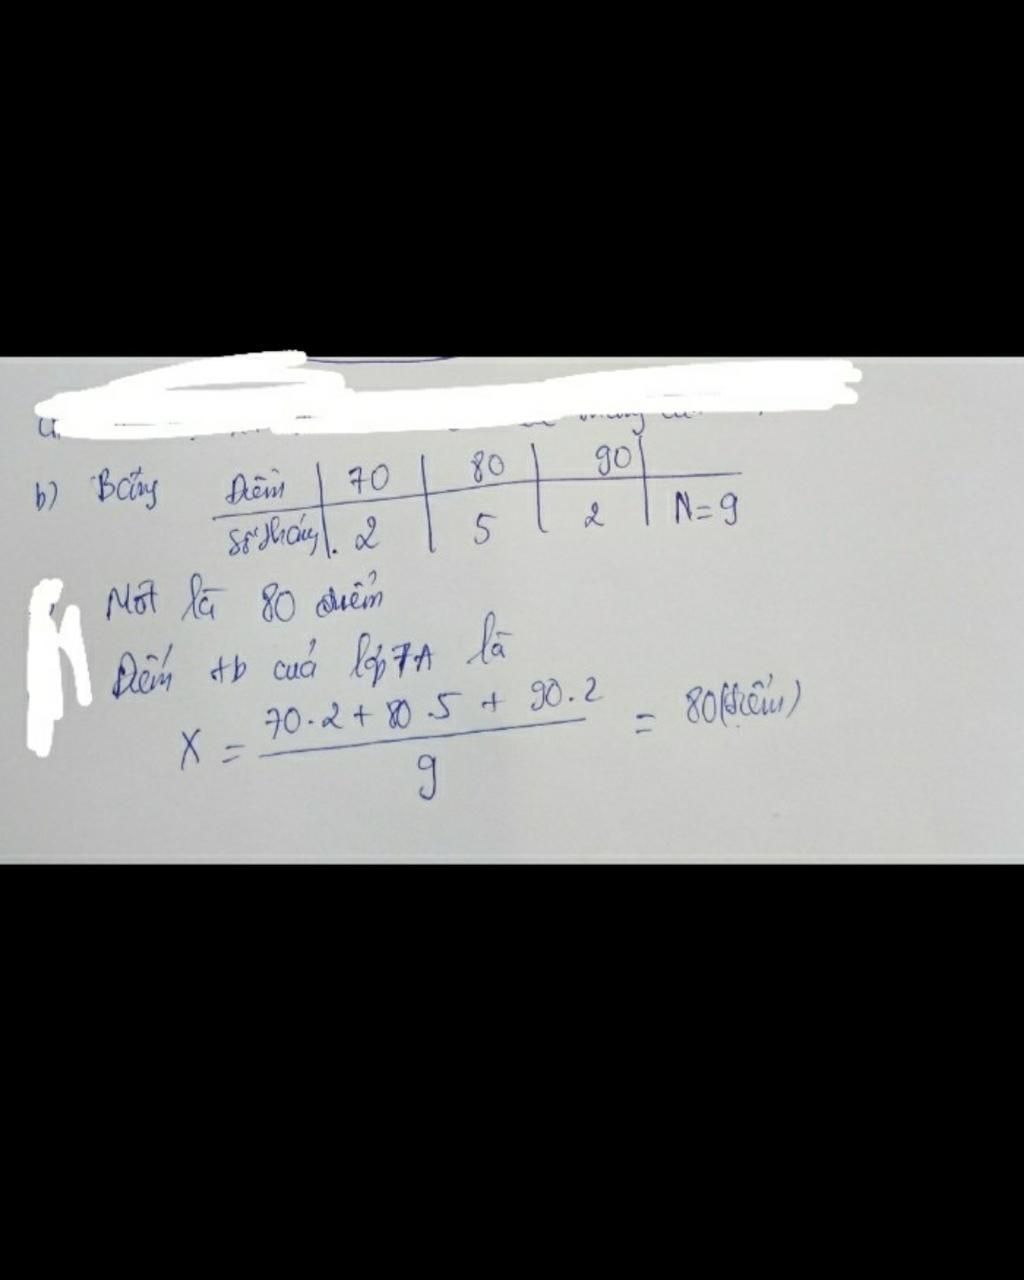 b) Bảng Điểm 70 80 90
Số tháng 2 5 2 N=9
Mốt là 80 điểm
Điểm tb của lớp 7A là
X = 70.2 + 80.5 + 90.2 / 9 = 80 (điểm)